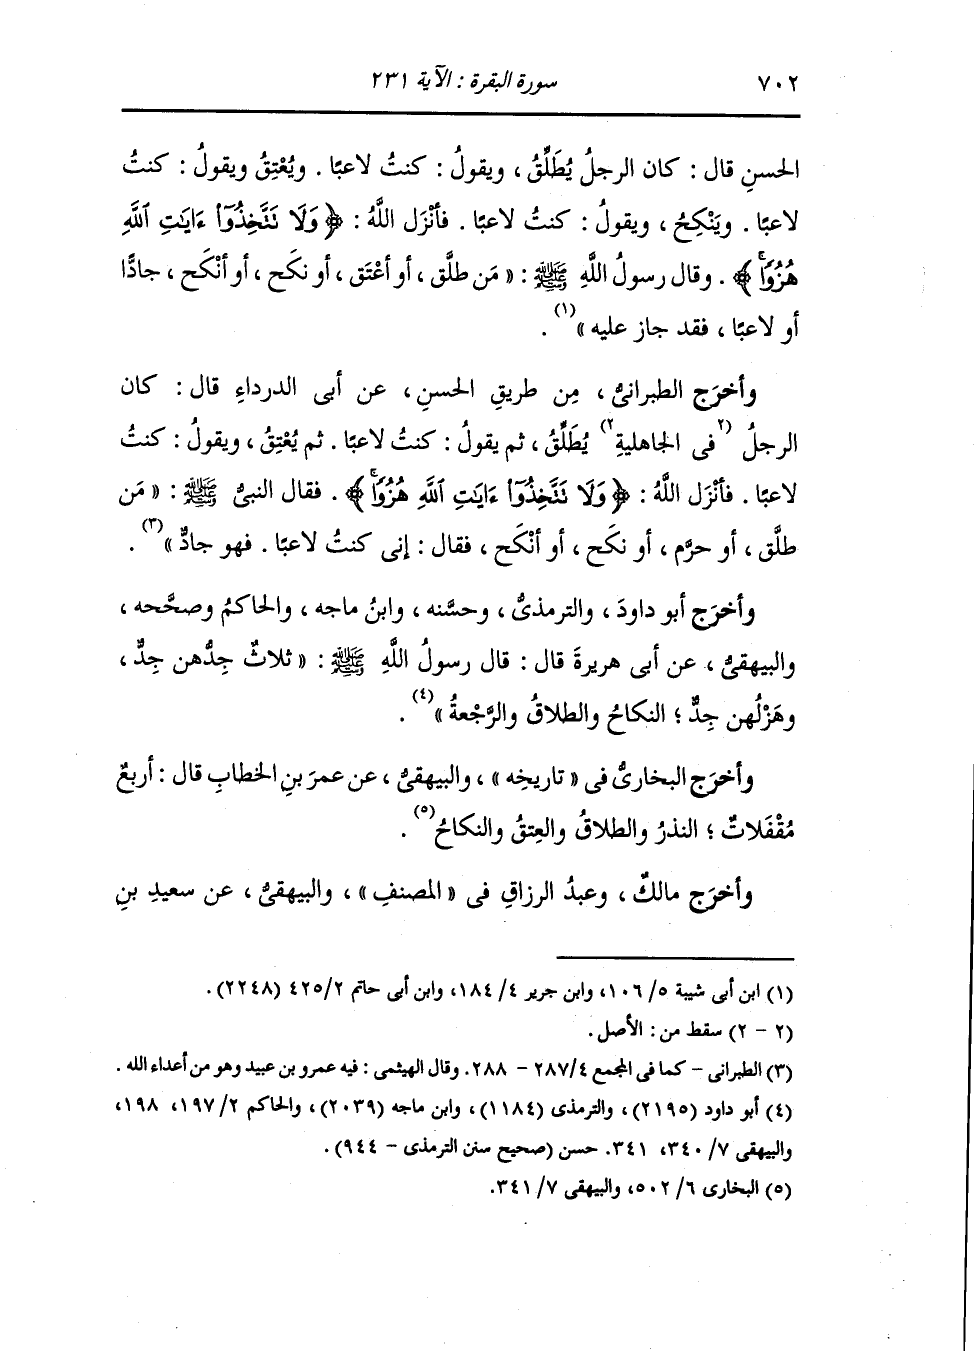 ٧٠٢ سورة البقرة : الآية ٢٣١
الحسنِ قال : كان الرجلُ يُطَلِّقُ ، ويقولُ : كنتُ لاعبًا . ويُعْتِقُ ويقولُ : كنتُ
لاعبًا . ويَنْكِحُ ، ويقولُ : كنتُ لاعبًا . فأنْزَل اللَّهُ : ﴿ وَلَا نَتَّخِذُوٓا۟ ءَايَٰتِ ٱللَّهِ
هُزُوًاۚ ﴾ . وقال رسولُ اللَّهِ ﷺ : « مَن طلَّق ، أو أعْتَق ، أو نكَح ، أو أنْكَح ، جادًّا
أو لاعبًا ، فقد جاز عليه »(١) .
وأخرَج الطبرانىُّ ، مِن طريقِ الحسنِ ، عن أبى الدرداءِ قال : كان
الرجلُ (٢فى الجاهليةِ٢) يُطَلِّقُ ، ثم يقولُ : كنتُ لاعبًا . ثم يُعْتِقُ ، ويقولُ : كنتُ
لاعبًا . فأنْزَل اللَّهُ : ﴿ وَلَا نَتَّخِذُوٓا۟ ءَايَٰتِ ٱللَّهِ هُزُوًاۚ ﴾ . فقال النبىُّ ﷺ : « مَن
طلَّق ، أو حرَّم ، أو نكَح ، أو أنْكَح ، فقال : إنى كنتُ لاعبًا . فهو جادٌّ »(٣) .
وأخرَج أبو داودَ ، والترمذىُّ ، وحسَّنه ، وابنُ ماجه ، والحاكمُ وصحَّحه ،
والبيهقىُّ ، عن أبى هريرةَ قال : قال رسولُ اللَّهِ ﷺ : « ثلاثٌ جِدُّهن جِدٌّ ،
وهَزْلُهن جِدٌّ ؛ النكاحُ والطلاقُ والرَّجْعةُ »(٤) .
وأخرَج البخارىُّ فى « تاريخِه » ، والبيهقىُّ ، عن عمرَ بنِ الخطابِ قال : أربعٌ
مُقْفَلاتٌ ؛ النذرُ والطلاقُ والعِتقُ والنكاحُ(٥) .
وأخرَج مالكٌ ، وعبدُ الرزاقِ فى « المصنفِ » ، والبيهقىُّ ، عن سعيدِ بنِ
(١) ابن أبى شيبة ٥/ ١٠٦، وابن جرير ٤/ ١٨٤، وابن أبى حاتم ٢/ ٤٢٥ (٢٢٤٨) .
(٢ - ٢) سقط من : الأصل .
(٣) الطبرانى - كما فى المجمع ٤/ ٢٨٧ - ٢٨٨. وقال الهيثمى : فيه عمرو بن عبيد وهو من أعداء الله .
(٤) أبو داود (٢١٩٥) ، والترمذى (١١٨٤) ، وابن ماجه (٢٠٣٩) ، والحاكم ٢/ ١٩٧، ١٩٨،
والبيهقى ٧/ ٣٤٠، ٣٤١. حسن (صحيح سنن الترمذى - ٩٤٤) .
(٥) البخارى ٦/ ٥٠٢، والبيهقى ٧/ ٣٤١.